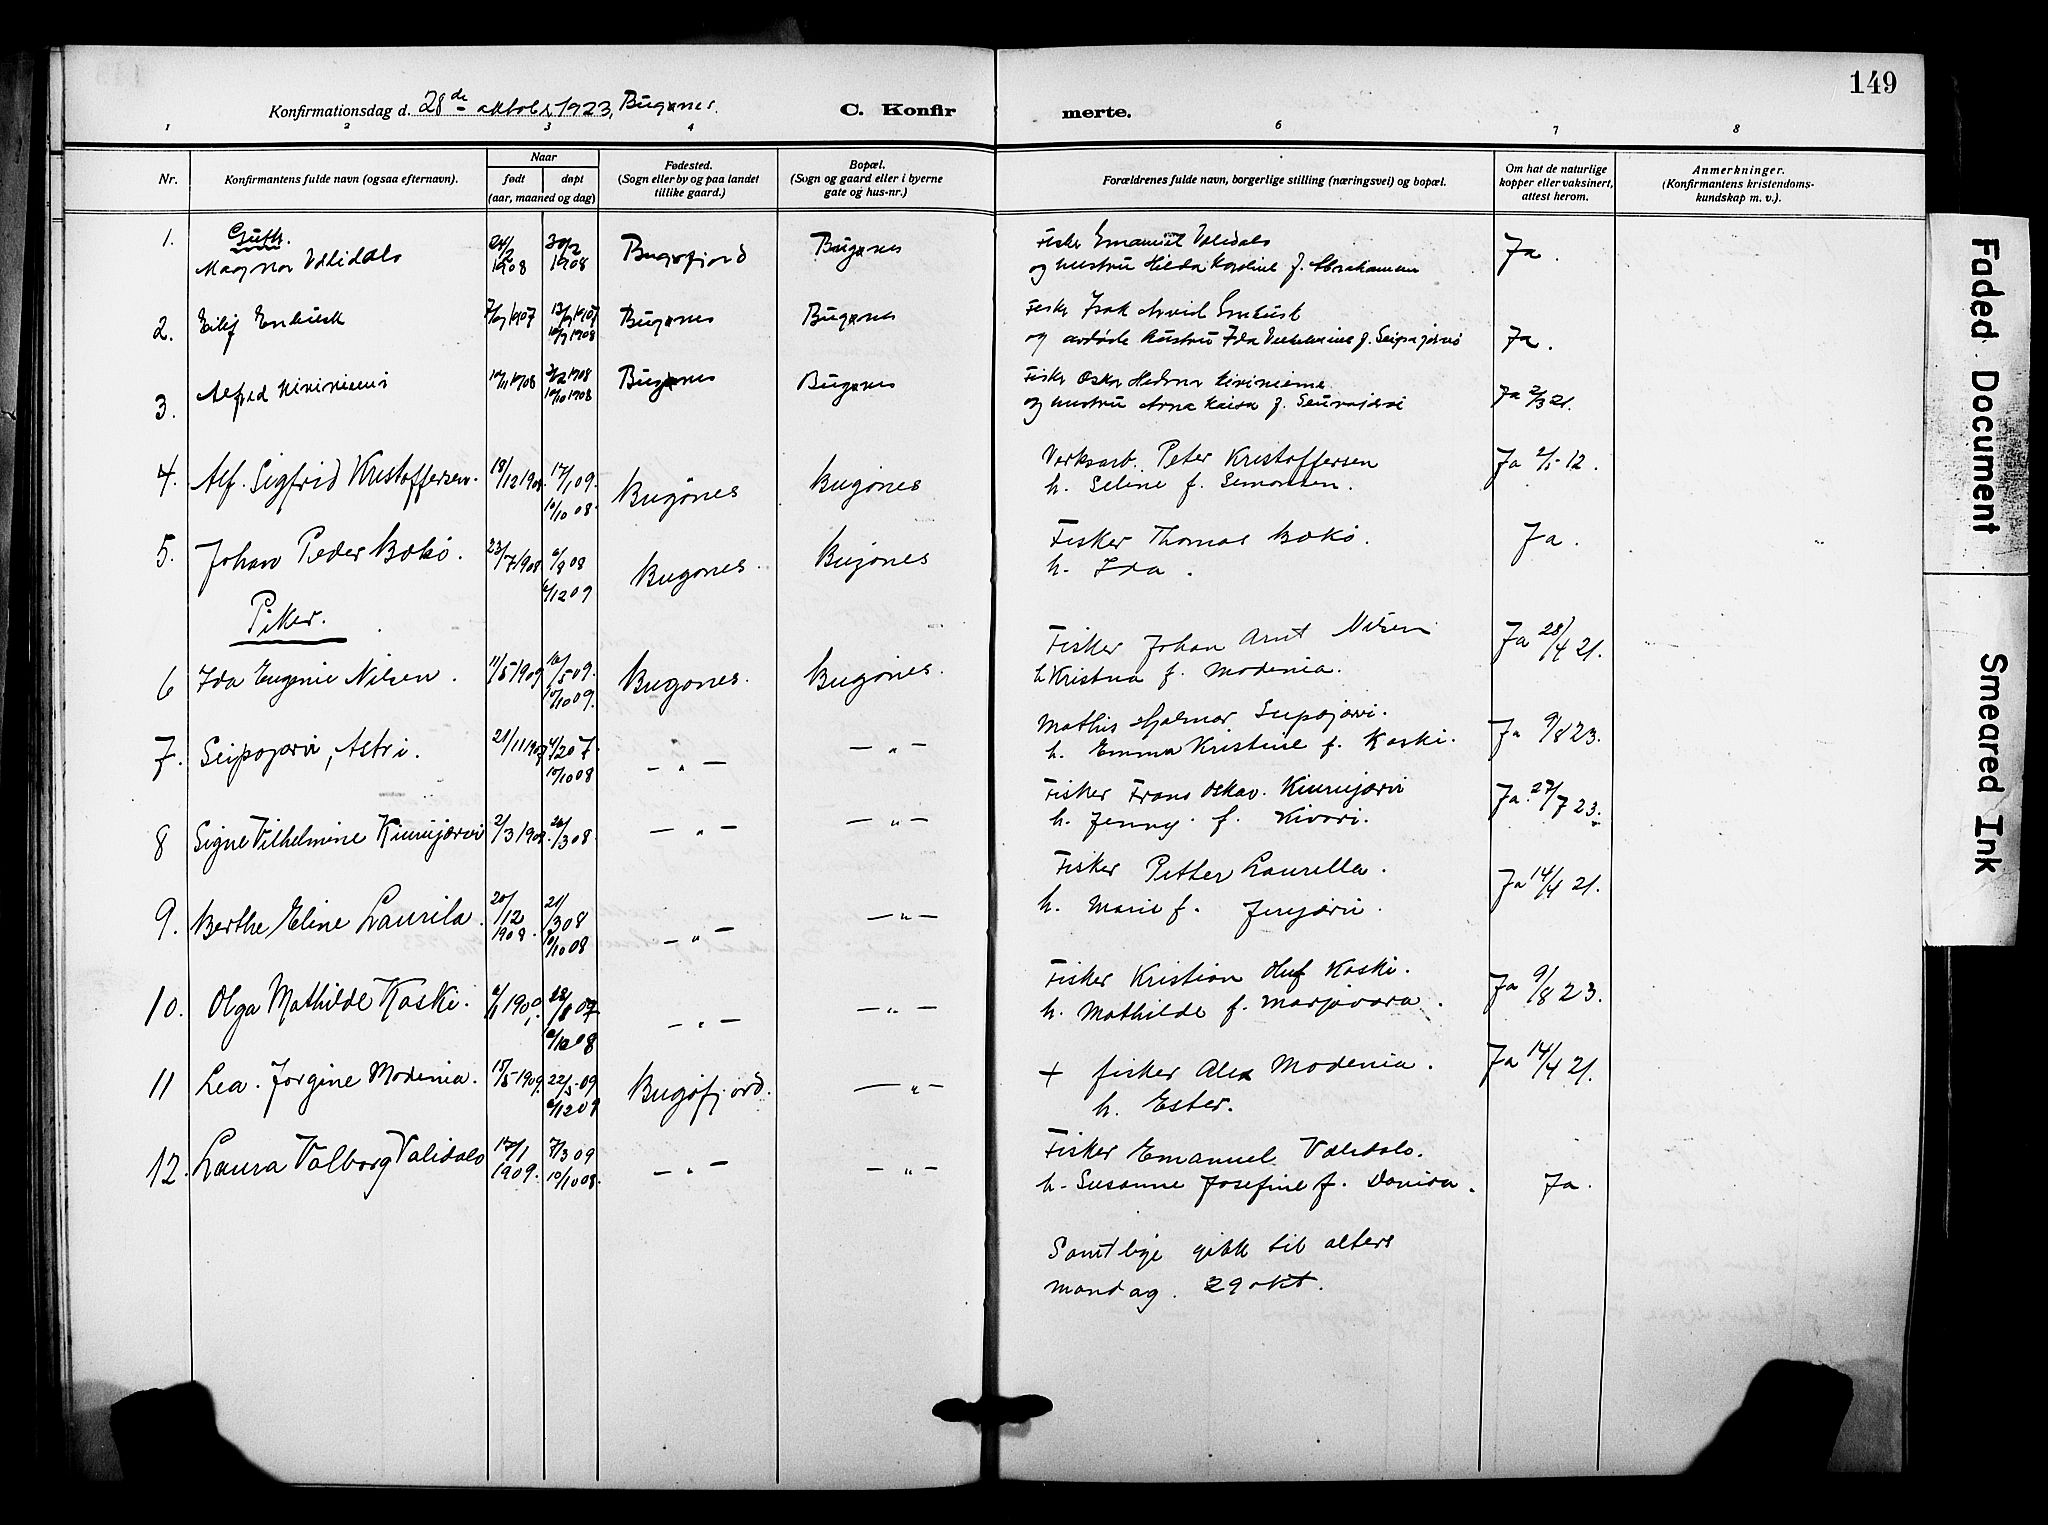 149
Konfirmationsdag d. 28de oktober 1923, Bugønes.
C. Konfirmerte.
1 2 3 4 6 7 8
Nr.
Konfirmantens fulde navn (ogsaa efternavn).
Naar
født døpt
(aar, maaned og dag)
Fødested.
(Sogn eller by og paa landet
tillike gaard.)
Bopæl.
(Sogn og gaard eller i byerne
gate og hus-nr.)
Forældrenes fulde navn, borgerlige stilling (næringsvei) og bopæl.
Om hat de naturlige
kopper eller vaksinert,
attest herom.
Anmerkninger.
(Konfirmantens kristendoms-
kundskap m. v.).
Gutt.
1. Magnor Validalo 24/2 1908 30/2 1908 Bugøfjord Bugønes Fisker Emanuel Validalo Ja.
og hustru Hilda Karoline f. Abrahamsen
2. Eilif Enbusk 7/9 1907 Bugønes Bugønes Fisker Isak Arvid Enbusk
og avdøde hustru Ida Vilhelmine f. Seipajærvi Ja.
3. Alfred Kiviniemi 10/10 1908 Bugønes Bugønes Fisker Oskar Kiviniemi
og hustru Anna Kaisa f. Ja 2/3 21.
4. Alf. Sigfrid Kristoffersen. 18/12 1908. 17/1 09. 10/10 08. Bugønes Bugønes Verksarb. Peter Kristoffersen Ja 2/5 12.
h. Seline f. Simonsen.
5. Johan Peder Bokø. 23/7 1908 6/8 08 6/12 09 Bugønes. Bugønes Fisker Thomas Bokø. Ja.
h. Ida.
Piker.
6 Ida Eugenie Nilsen. 11/5 1909 16/5 09. 10/10 09. Bugønes. Bugønes. Fisker Johan Arnt Nilsen Ja 28/4 21.
h Kristna f. Modenia.
7. Seipajærvi, Astri. 21/11 1907 10/10 08 — „ — — „ — Mathis Hjalmar Seipajærvi. Ja 9/8 23.
h. Emma Kristine f. Koski.
8 Signe Vilhelmine Kiurujærvi 2/3 1908. 26/3 08. — „ — — „ — Fisker Frans Oskar. Kiurujærvi Ja. 27/7 23.
h. Jenny. f. Kivari.
9. Berthe Eline Laurila. 20/12 1908. 21/3 08 10/10 08 — „ — — „ — Fisker Petter Laurella. Ja 14/4 21.
h. Marie f.
10. Olga Mathilde Koski. 28/8 07 — „ — — „ — Fisker Kristian Koski. Ja 9/8 23.
h. Mathilde f. Marjavara.
11 Lea. Jorgine Modenia. 15/5 1909. 22/5 09 6/12 09 Bugøfjord. — „ — + fisker Alex Modenia. Ja 14/4 21.
h. Ester.
12. Laura Valborg Validalo 17/1 1909. 7/3 09 10/10 08. — „ — — „ — Fisker Emanuel Validalo.
h. Susanne Josefine f. Danisa. Ja.
Samtlige gikk til alters
mandag. 29 okt.
Faded Document
Smeared Ink